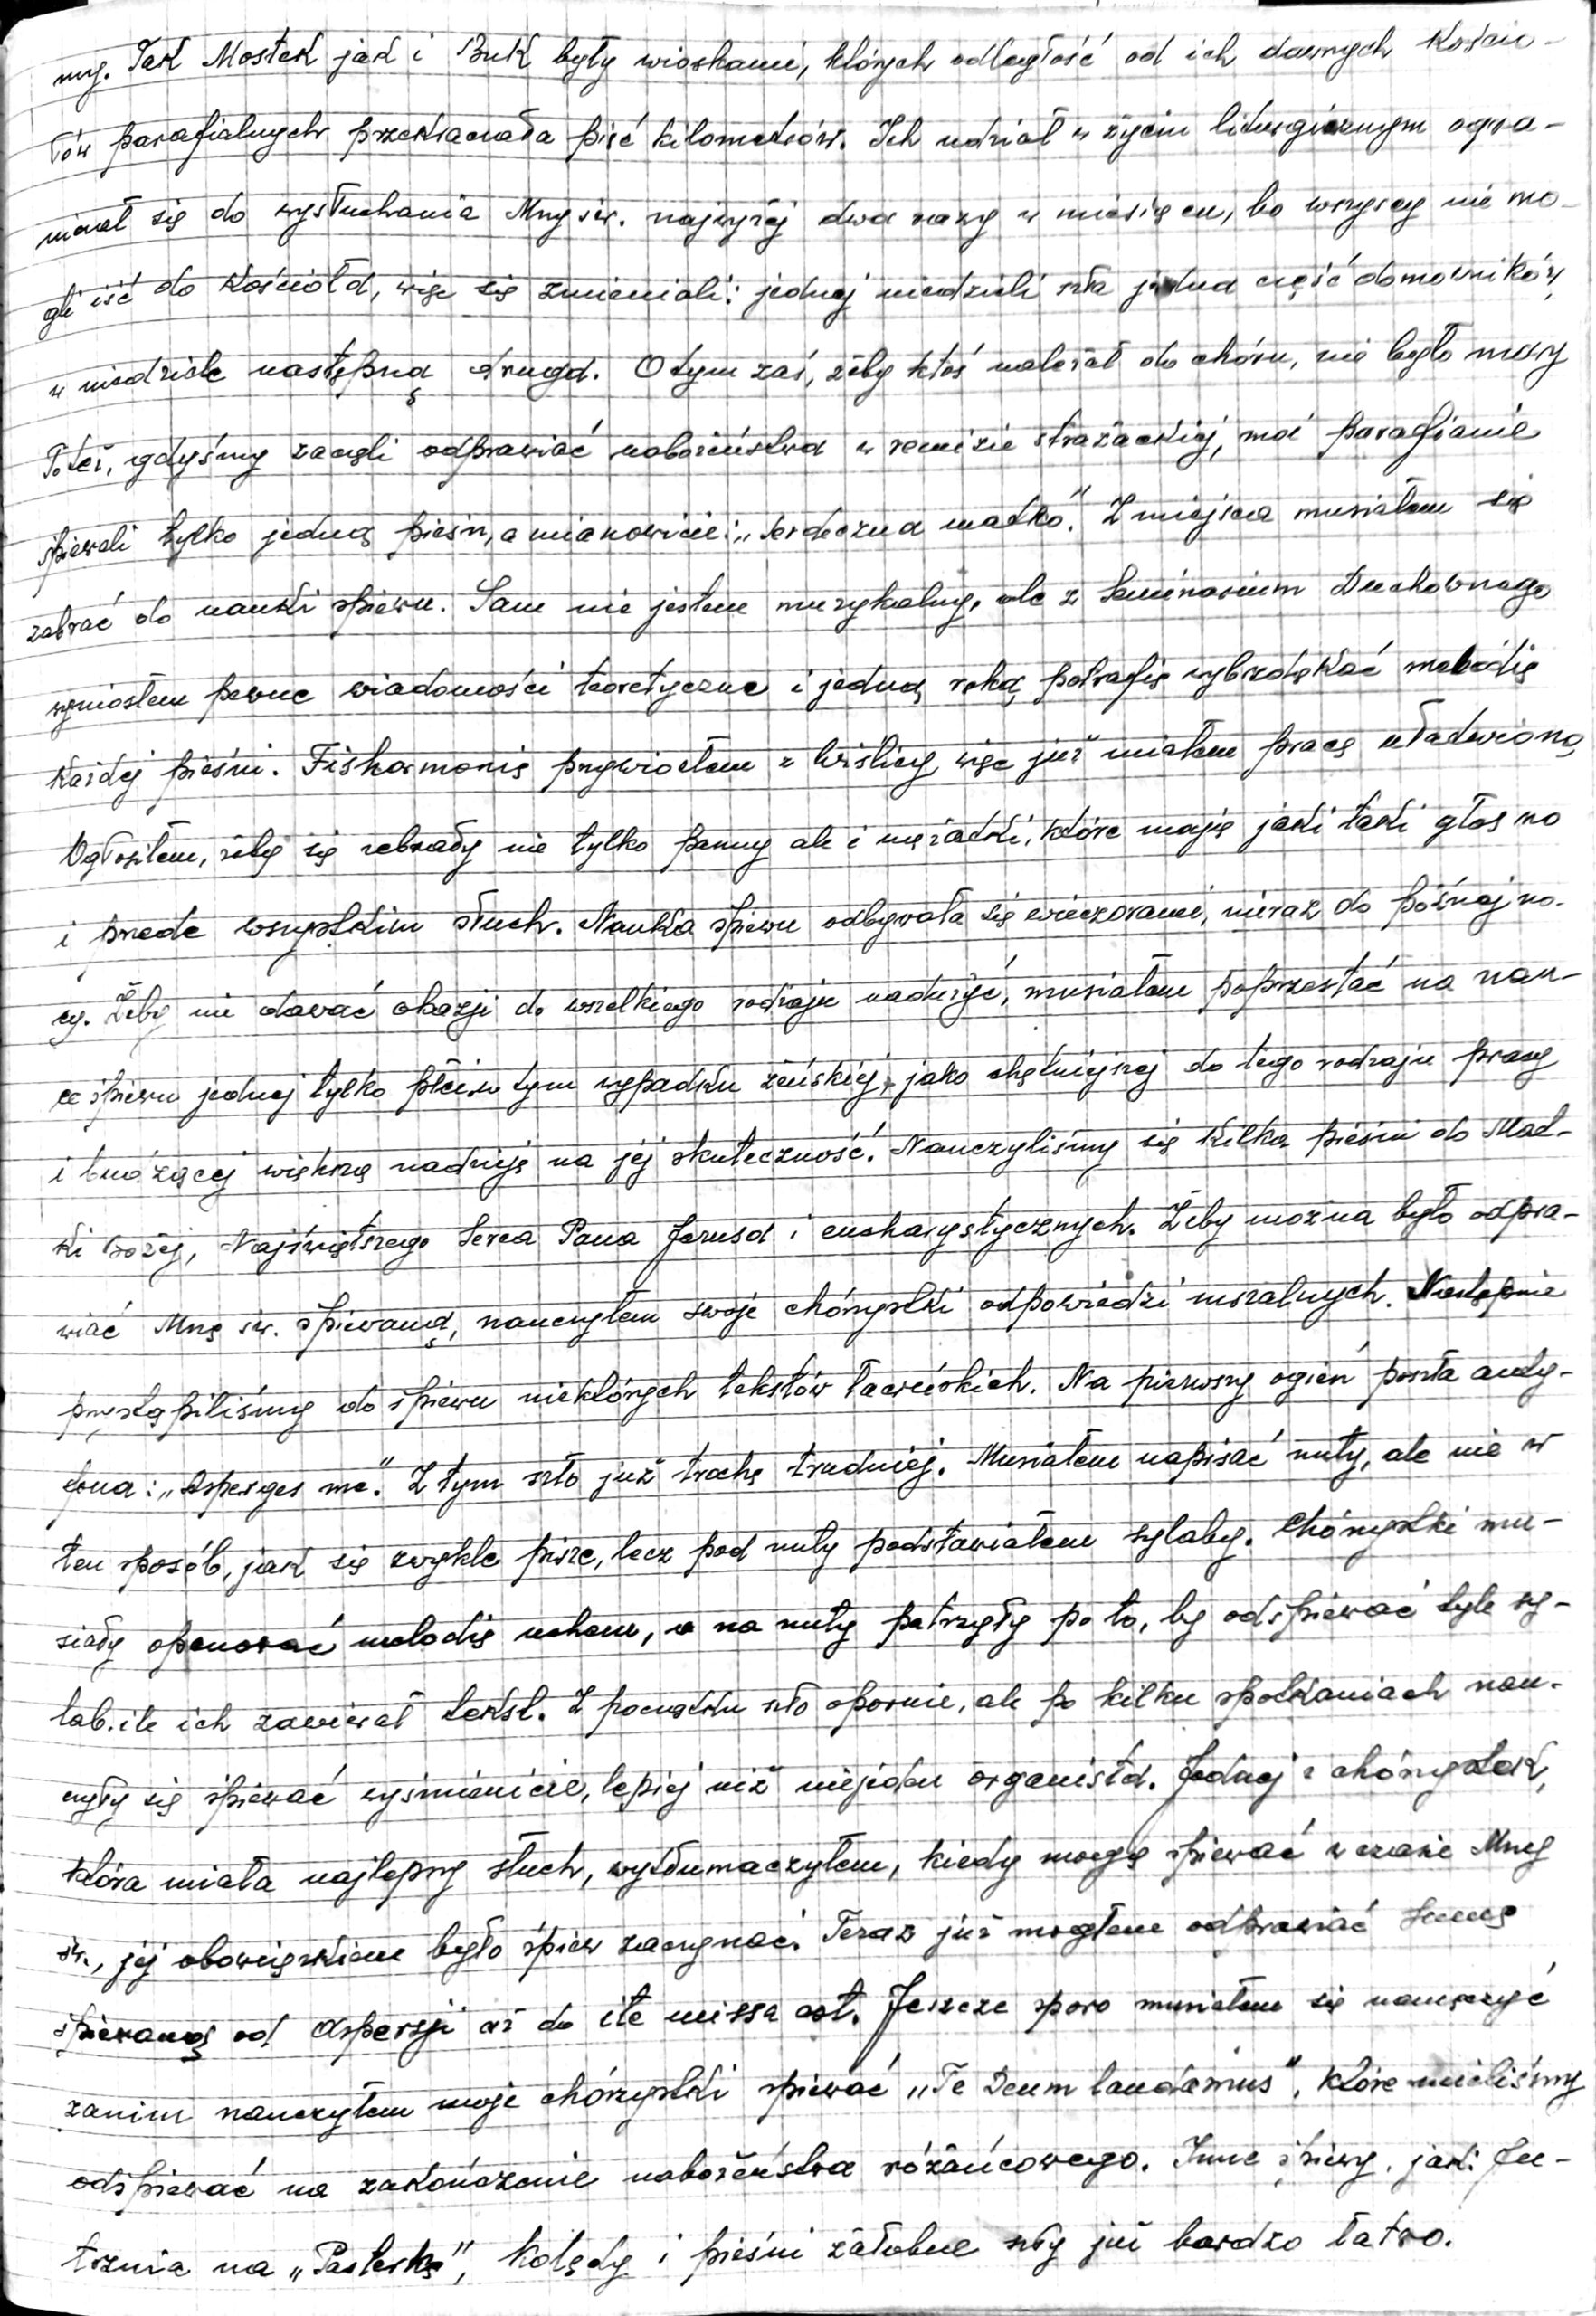 my. Tak Mostek jak i Buk były wioskami, których odległość od ich dawnych kościo-
łów parafialnych przekraczała pięć kilometrów. Ich udział w życiu liturgicznym ogra-
niczał się do wysłuchania Mszy św. najwyżej dwa razy w miesiącu, bo wszyscy nie mo-
gli iść do kościoła, więc się zmieniali: jednej niedzieli szła jedna część domowników,
w niedzielę następną druga. O tym zaś, żeby ktoś należał do chóru, nie było mowy
Toteż, gdyśmy zaczęli odprawiać nabożeństwa w remizie strażackiej, moi parafianie
śpiewali tylko jedną pieśń, a mianowicie: „Serdeczna matko." Z miejsca musiałem się
zabrać do nauki śpiewu. Sam nie jestem muzykalny, ale z Seminarium Duchownego
wyniosłem pewne wiadomości teoretyczne i jedną ręką potrafię wybrzdękać melodię
każdej pieśni. Fisharmonię przywiozłem z Wiślicy, więc już miałem pracę ułatwioną,
Ogłosiłem, żeby się zebrały nie tylko panny ale i mężatki, które mają jaki taki głos no
i przede wszystkim słuch. Nauka śpiewu odbywała się wieczorami, nieraz do późnej no-
cy. Żeby nie dawać okazji do wszelkiego rodzaju nadużyć, musiałem poprzestać na nau-
ce śpiewu jednej tylko płci, w tym wypadku żeńskiej, jako chętniejszej do tego rodzaju pracy
i budzącej większą nadzieję na jej skuteczność. Nauczyliśmy się kilka pieśni do Mat-
ki Bożej, Najświętszego Serca Pana Jezusa i eucharystycznych. Żeby można było odpra-
wiać Mszę św. śpiewaną, nauczyłem swoje chórzystki odpowiedzi mszalnych. Następnie
przystąpiliśmy do śpiewu niektórych tekstów łacińskich. Na pierwszy ogień poszła anty-
fona: „Asperges me." Z tym szło już trochę trudniej. Musiałem napisać nuty, ale nie w
ten sposób, jak się zwykle pisze, lecz pod nuty podstawiałem sylaby. Chórzystki mu-
siały opanować melodię uchem, a na nuty patrzyły po to, by odśpiewać tyle sy-
lab, ile ich zawierał tekst. Z początku szło opornie, ale po kilku spotkaniach nau-
czyły się śpiewać wyśmienicie, lepiej niż niejeden organista. Jednej z chórzystek,
która miała najlepszy słuch, wytłumaczyłem, kiedy mogę śpiewać w czasie Mszy
św., jej obowiązkiem było śpiew zaczynać. Teraz już mogłem odprawiać Sumę
śpiewaną od aspersji aż do ite missa est. Jeszcze sporo musiałem się namęczyć
zanim nauczyłem moje chórzystki śpiewać „Te Deum laudamus", które mieliśmy
odśpiewać na zakończenie nabożeństwa różańcowego. Inne śpiewy, jak: Ju-
trznia na „Pasterkę", kolędy i pieśni żałobne szły już bardzo łatwo.